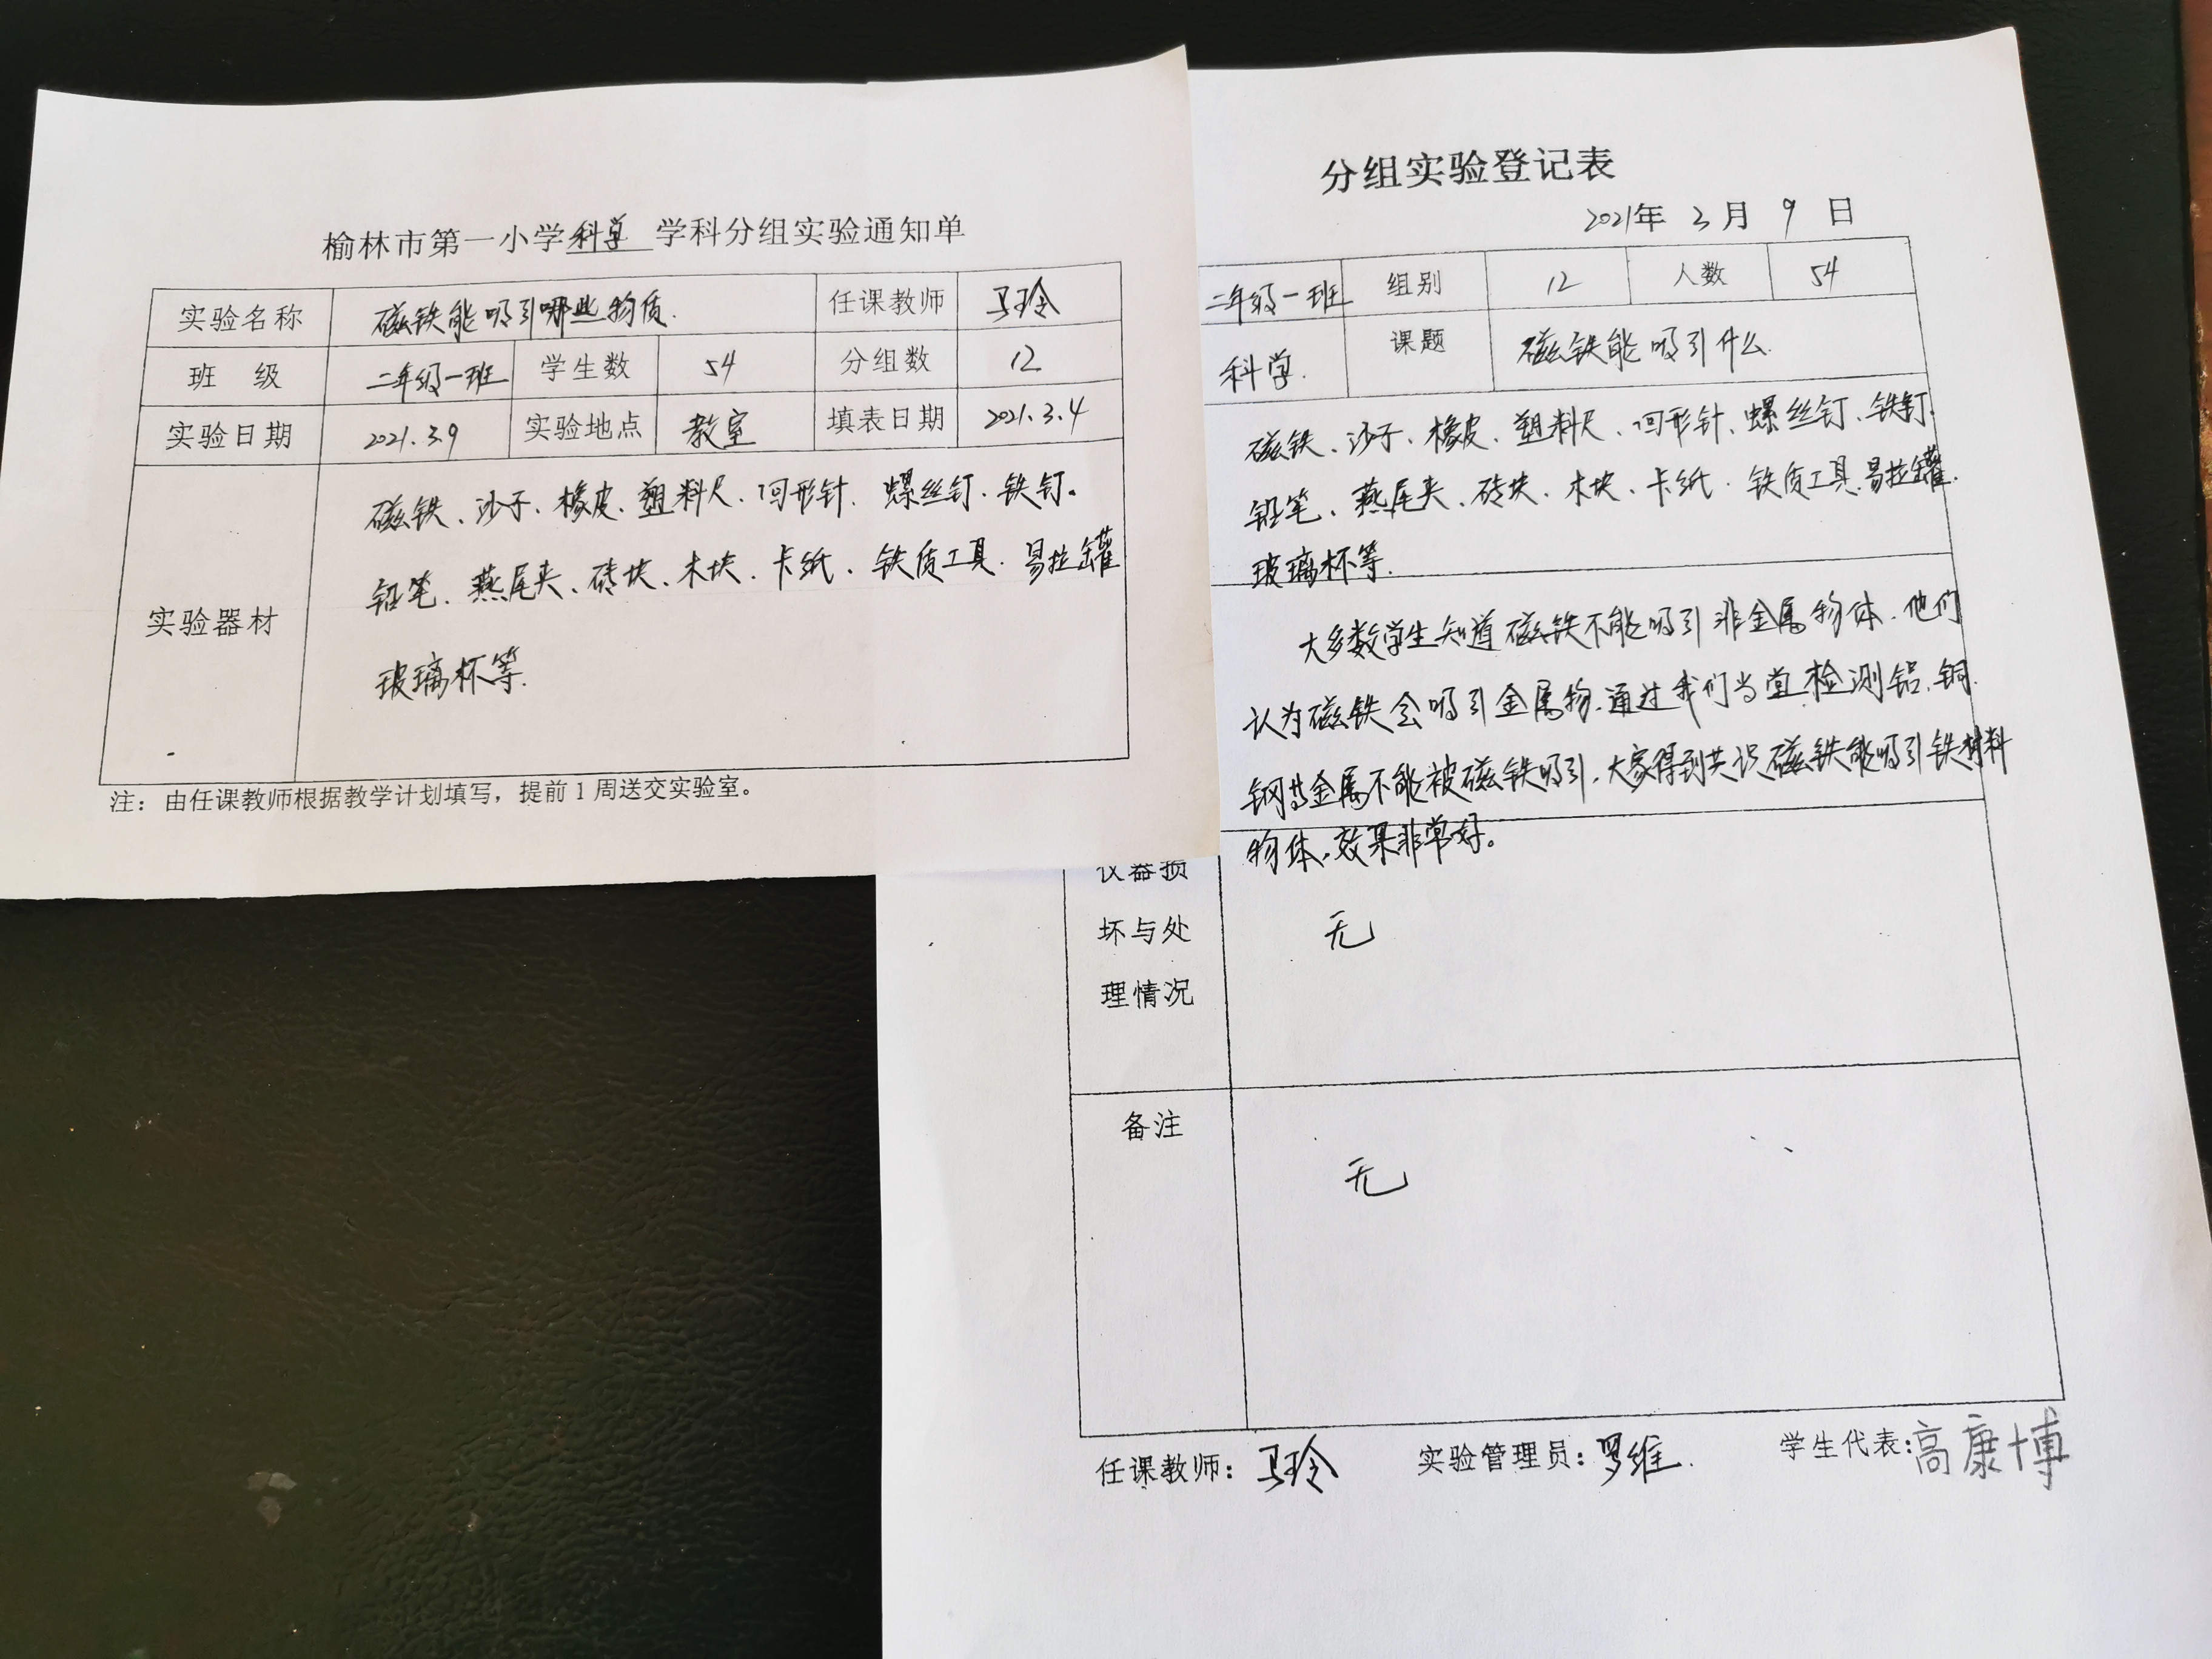 榆林市第一小学科学 学科分组实验通知单
实验名称 磁铁能吸引哪些物质. 任课教师 马玲
班 级 二年级一班 学生数 54 分组数 12
实验日期 2021.3.9 实验地点 教室 填表日期 2021.3.4
实验器材
磁铁、沙子、橡皮、塑料尺、回形针、螺丝钉、铁钉。
铅笔、燕尾夹、砖块、木块、卡纸、铁质工具、易拉罐
玻璃杯等.
注：由任课教师根据教学计划填写，提前1周送交实验室。
分组实验登记表
2021年 3月 9 日
二年级一班 组别 12 人数 54
科学. 课题 磁铁能吸引什么.
磁铁、沙子、橡皮、塑料尺、回形针、螺丝钉、铁钉.
铅笔、燕尾夹、砖块、木块、卡纸、铁质工具.易拉罐.
玻璃杯等.
大多数学生知道磁铁不能吸引非金属物体.他们
认为磁铁会吸引金属物.通过我们当堂检测铝、铜.
钢等金属不能被磁铁吸引.大家得到共识磁铁能吸引铁材料
物体.效果非常好。
仪器损
坏与处
理情况
无
备注
无
任课教师：马玲 实验管理员：罗维. 学生代表：高康博